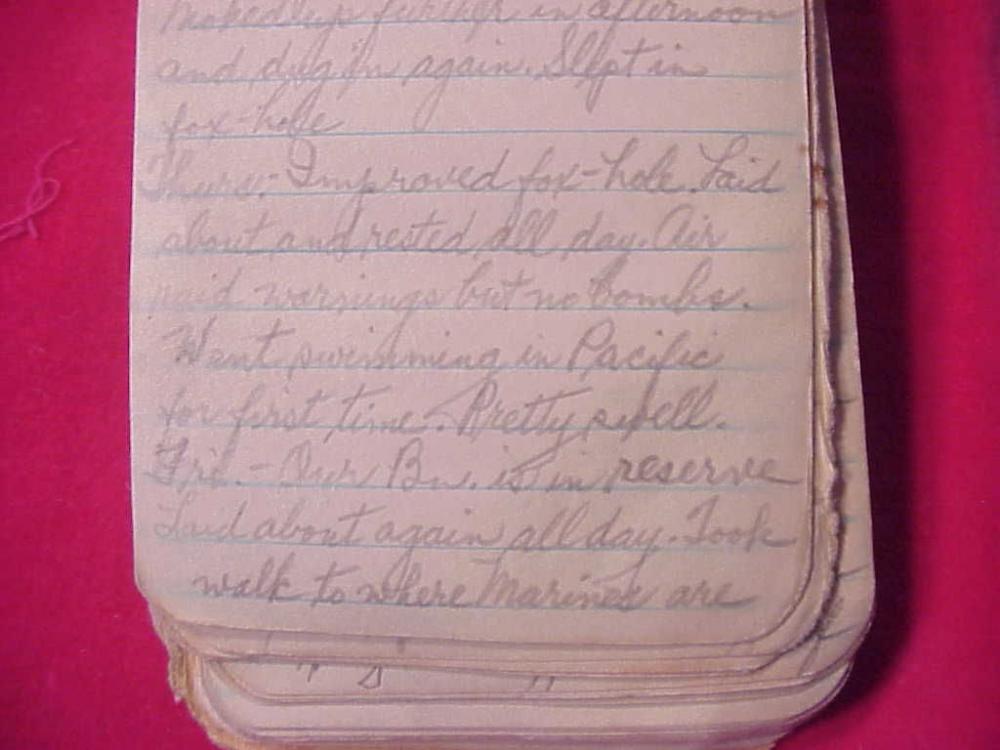 Moved up further in afternoon
and dug in again. Slept in
fox-hole
Thurs.- Improved fox-hole. Laid
about and rested all day. Air
raid warnings but no bombs.
Went swimming in Pacific
for first time. Pretty swell.
Fri. - Our Bn. is in reserve
Laid about again all day. Took
walk to where Marines are